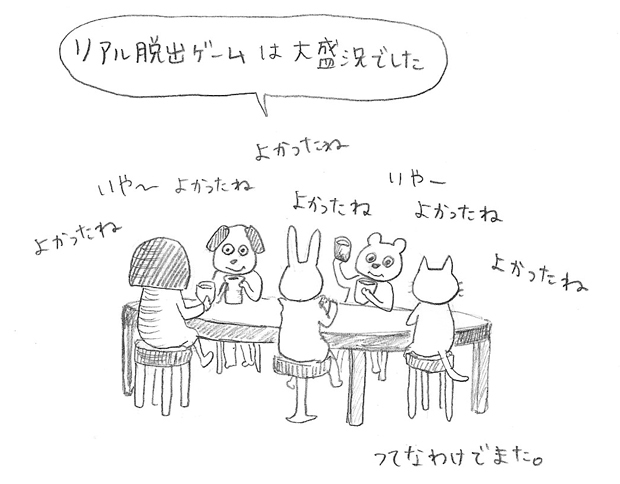 リアル脱出ゲームは大盛況でした
よかったね
いや〜 よかったね
いやー
よかったね
よかったね
よかったね
よかったね
ってなわけでまた。